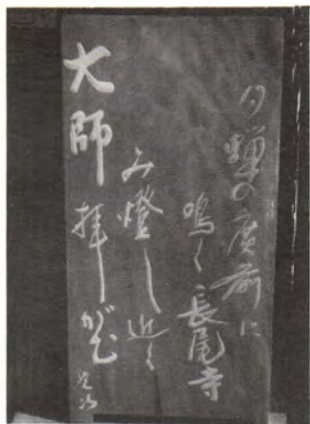 夕蝉の廣前に
鳴く長尾寺
み燈し近く
大師拝がむ